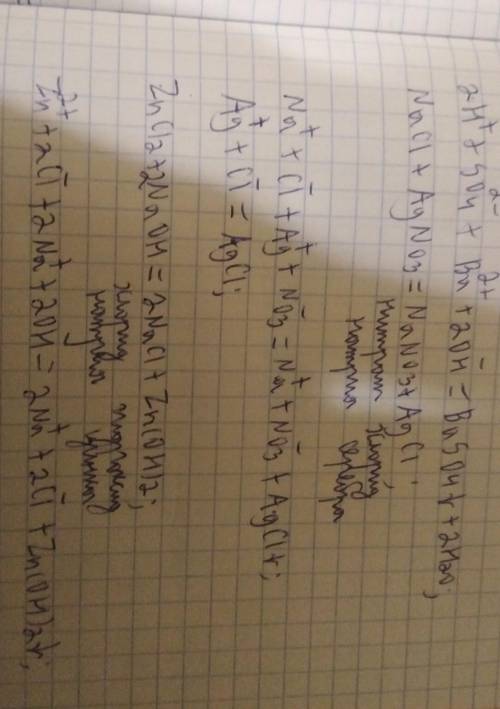 2H⁺ + SO₄²⁻ + Ba²⁺ + 2OH⁻ = BaSO₄↓ + 2H₂O;
NaCl + AgNO₃ = NaNO₃ + AgCl;
нитрат хлорид
натрия серебра
Na⁺ + Cl⁻ + Ag⁺ + NO₃⁻ = Na⁺ + NO₃⁻ + AgCl↓;
Ag⁺ + Cl⁻ = AgCl;
ZnCl₂ + 2NaOH = 2NaCl + Zn(OH)₂;
хлорид гидроксид
натрия цинка
Zn²⁺ + 2Cl⁻ + 2Na⁺ + 2OH⁻ = 2Na⁺ + 2Cl⁻ + Zn(OH)₂↓;